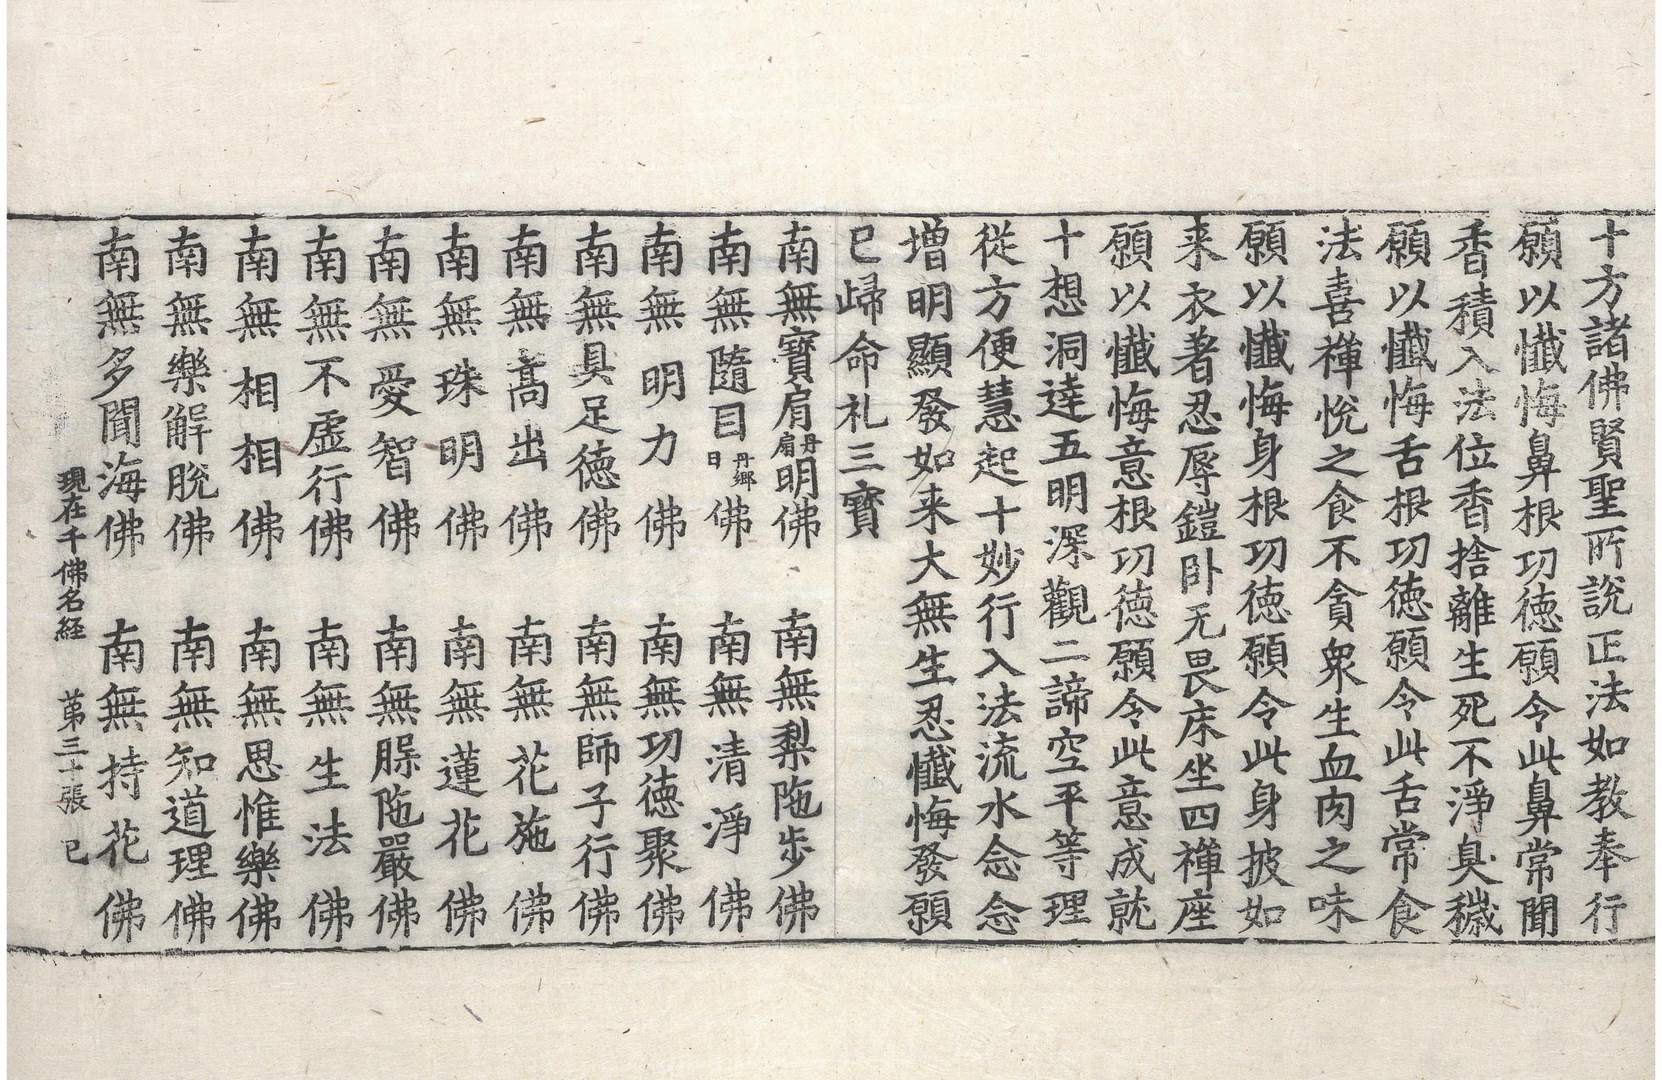 十方諸佛賢聖所說正法如教奉行
願以懺悔鼻根功德願令此鼻常聞
香積入法位香捨離生死不淨臭穢
願以懺悔舌根功德願令此舌常食
法喜禪悅之食不貪衆生血肉之味
願以懺悔身根功德願令此身披如
来衣著忍辱鎧卧无畏床坐四禪座
願以懺悔意根功德願令此意成就
十想洞達五明深觀二諦空平等理
從方便慧起十妙行入法流水念念
增明顯發如来大無生忍懺悔發願
已歸命礼三寶
南無寶肩丹扇明佛 南無梨陁步佛
南無隨目丹鄉日佛 南無清淨佛
南無明力佛 南無功德聚佛
南無具足德佛 南無師子行佛
南無高出佛 南無花施佛
南無珠明佛 南無蓮花佛
南無愛智佛 南無脲陁嚴佛
南無不虛行佛 南無生法佛
南無相相佛 南無思惟樂佛
南無樂解脫佛 南無知道理佛
南無多聞海佛 南無持花佛
現在千佛名経 苐三十張 已